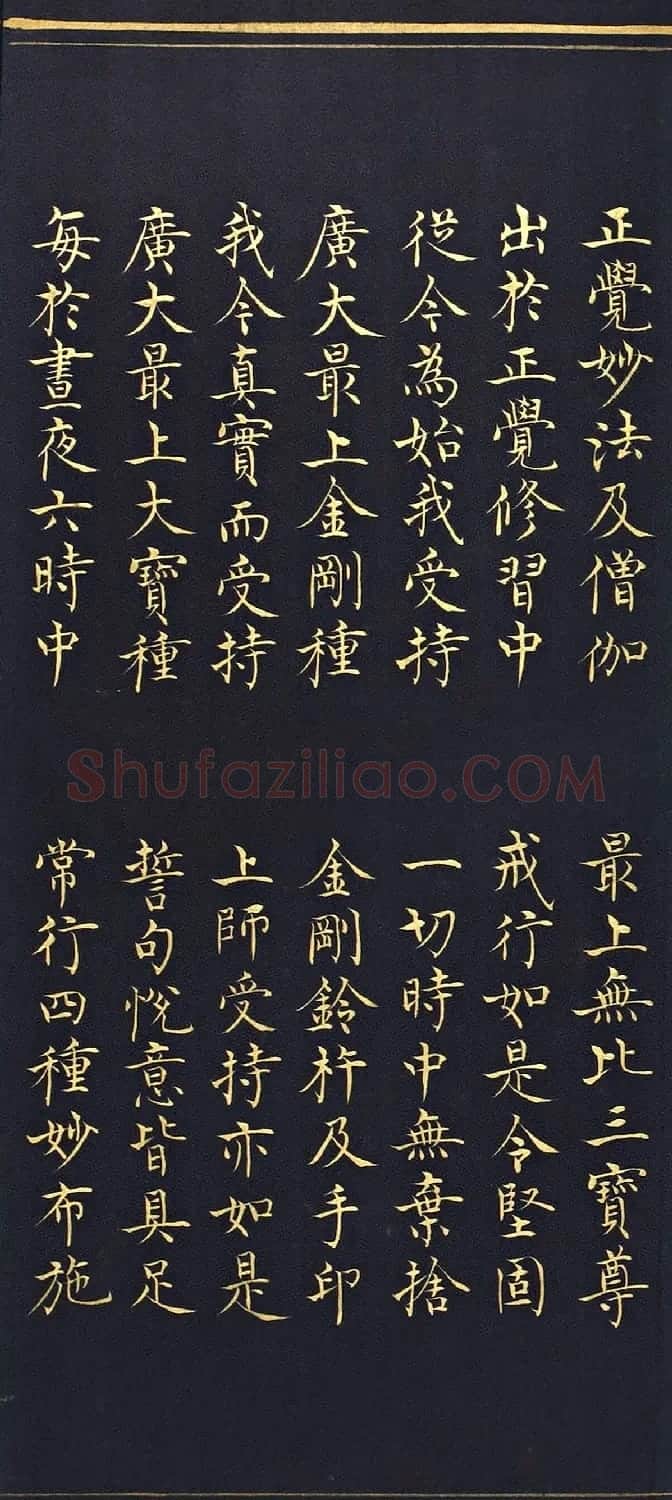 正覺妙法及僧伽 最上無比三寶尊
出於正覺修習中 戒行如是令堅固
從今為始我受持 一切時中無棄捨
廣大最上金剛種 金剛鈴杵及手印
我今真實而受持 上師受持亦如是
廣大最上大寶種 誓句悅意皆具足
每於晝夜六時中 常行四種妙布施
Shufaziliao.COM